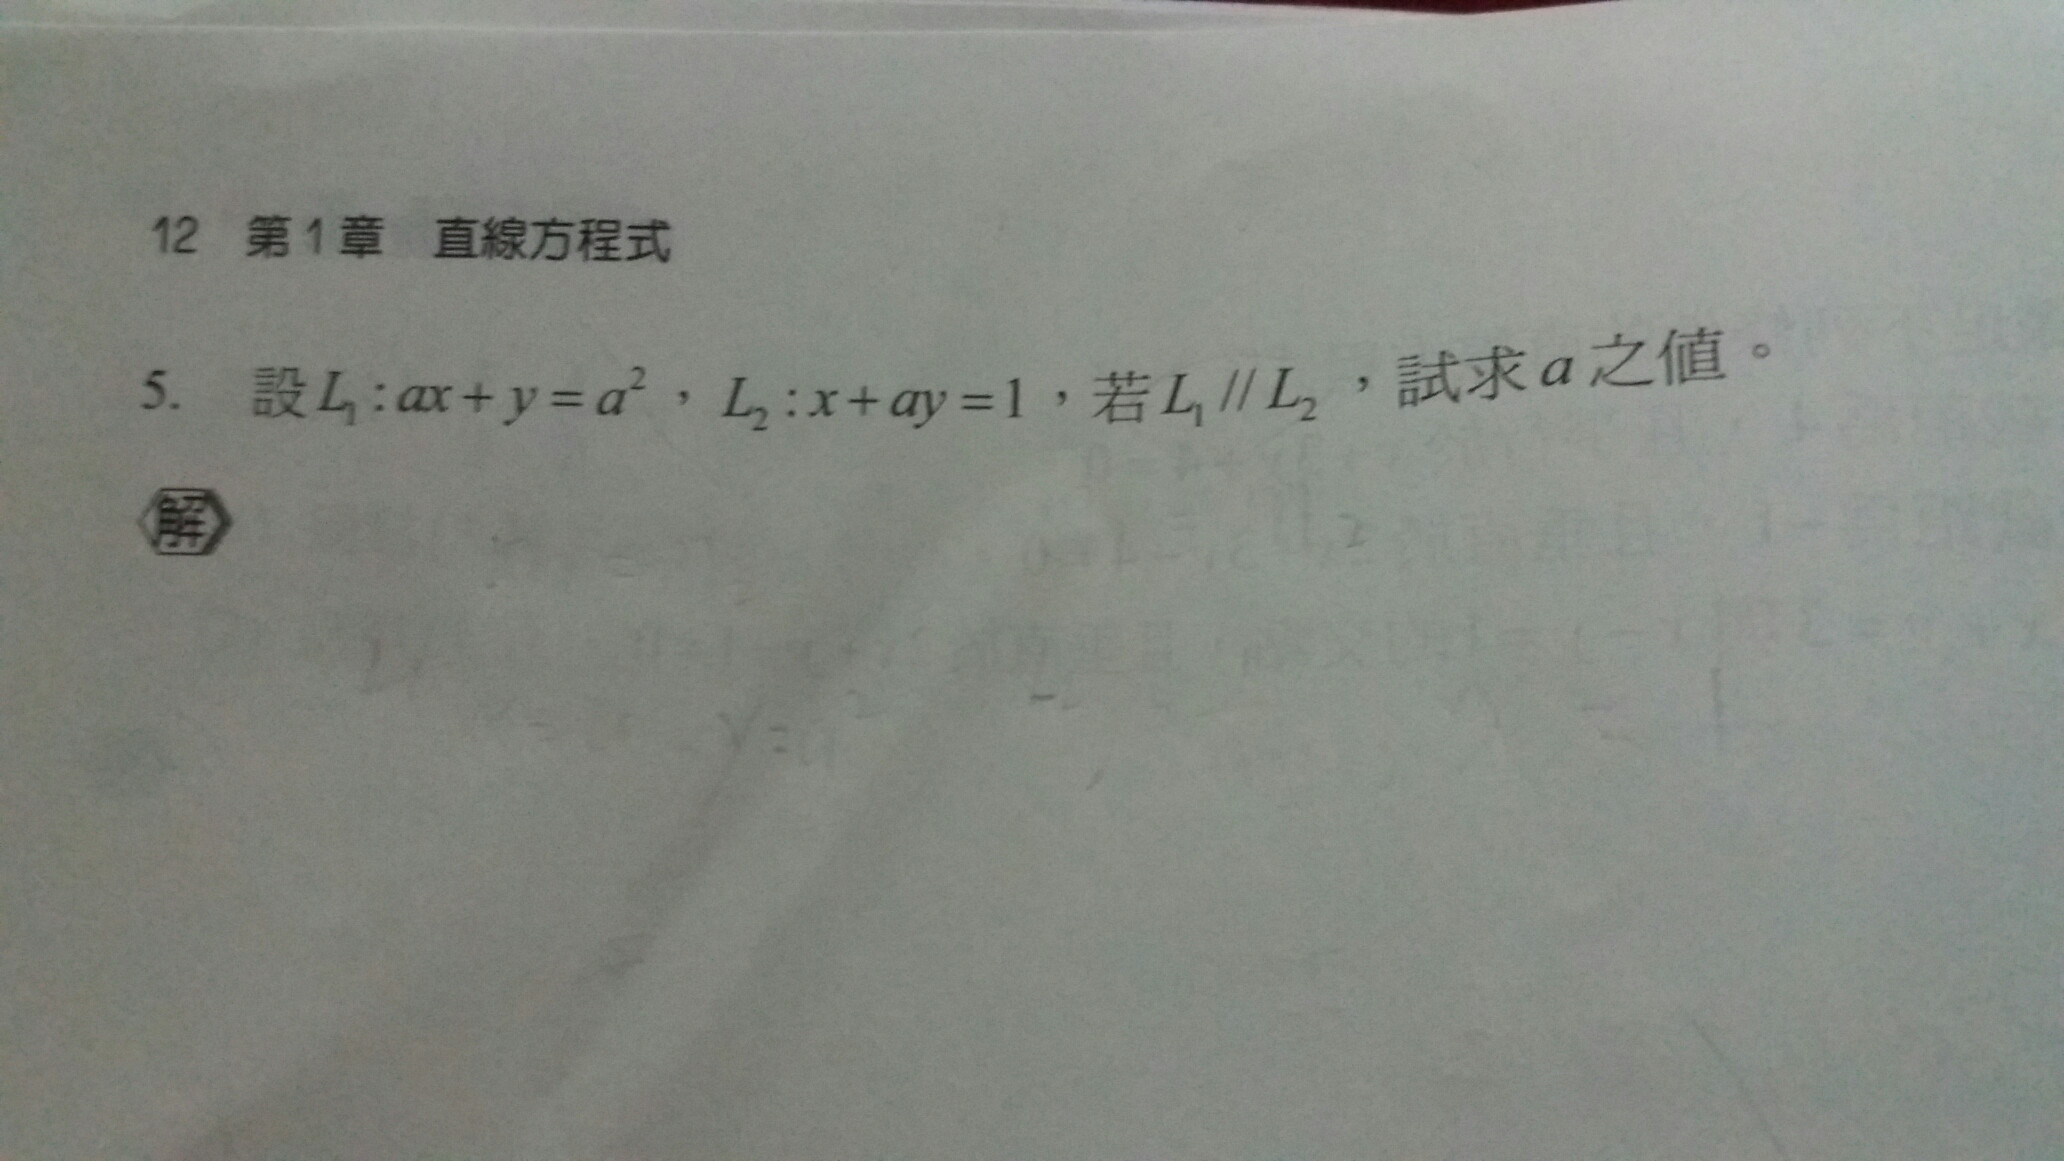 12 第1章 直線方程式
5. 設L₁:ax+y=a²，L₂:x+ay=1，若L₁//L₂，試求a之值。
解